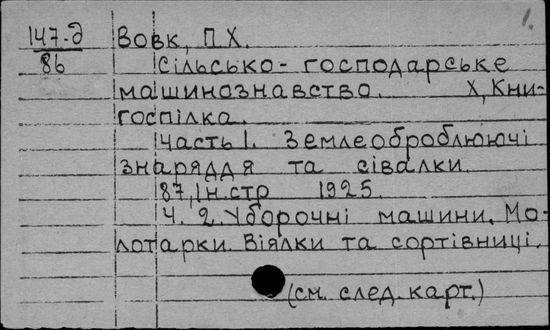 1.
147-д Вовк, П.Х.
86 Сільсько-господарське
машинознавство. Х, Кни-
госпілка.
Часть 1. Землеоброблюючі
знаряддя та сівалки.
87, 1н.стр 1925.
Ч. 2. Уборочні машини. Мо-
лотарки. Віялки та сортівниці.
(см. след. карт.)